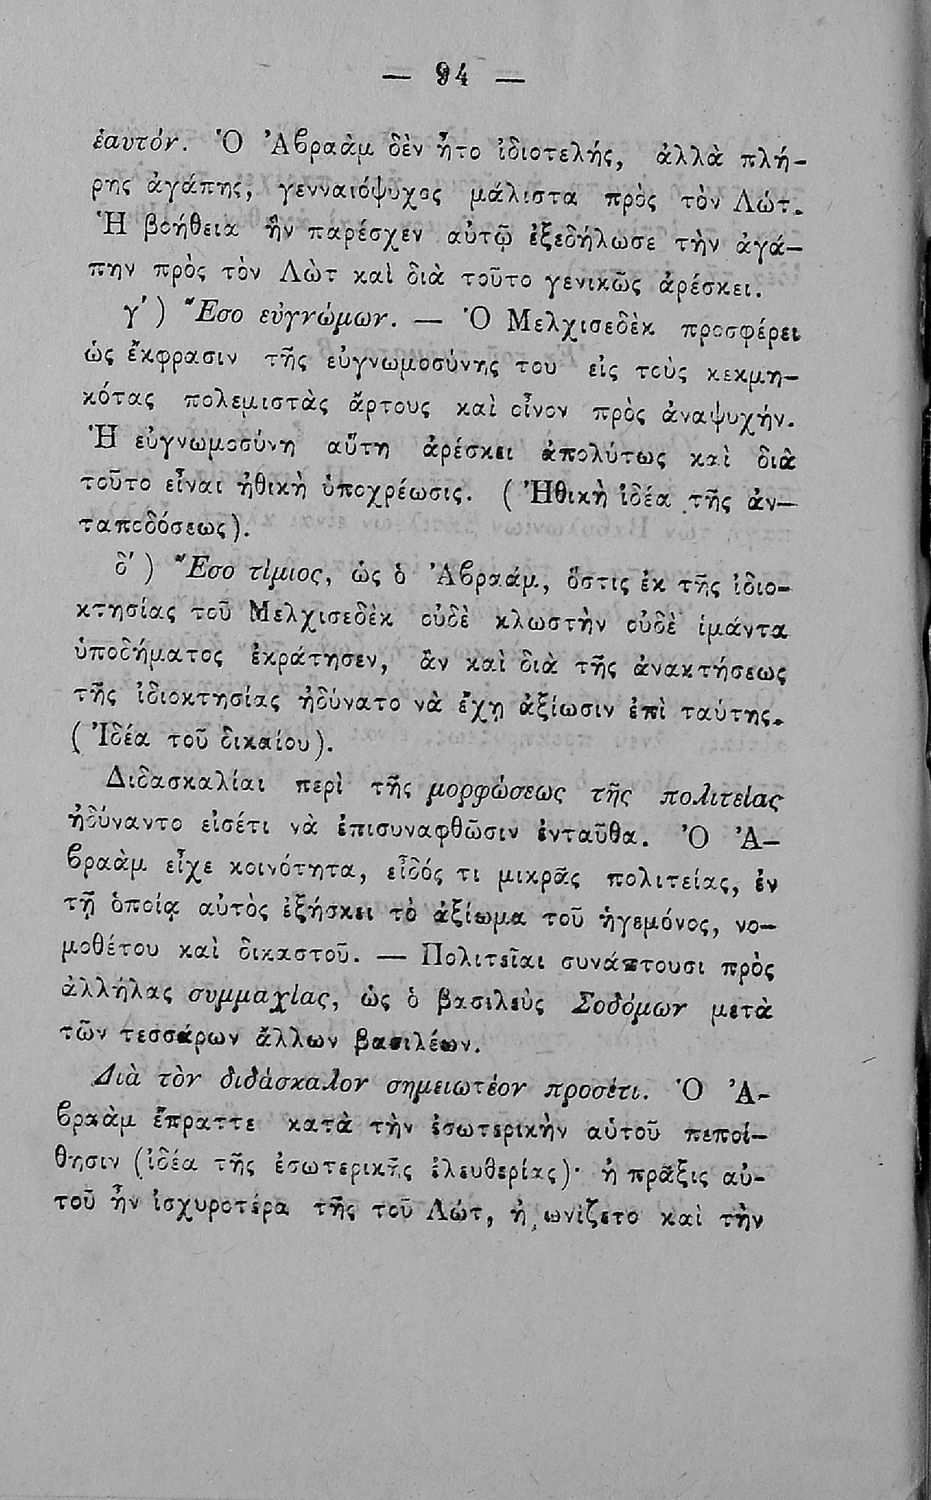 — 94 —
ἑαυτόν. Ὁ Ἀβραὰμ δὲν ἦτο ἰδιοτελής, ἀλλὰ πλή-
ρης ἀγάπης, γενναιόψυχος μάλιστα πρὸς τὸν Λώτ.
Ἡ βοήθεια ἣν παρέσχεν αὐτῷ ἐξεδήλωσε τὴν ἀγά-
πην πρὸς τὸν Λὼτ καὶ διὰ τοῦτο γενικῶς ἀρέσκει.
γ΄) Ἔσο εὐγνώμων. — Ὁ Μελχισεδὲκ προσφέρει
ὡς ἔκφρασιν τῆς εὐγνωμοσύνης του εἰς τοὺς κεκμη-
κότας πολεμιστὰς ἄρτους καὶ οἶνον πρὸς ἀναψυχήν.
Ἡ εὐγνωμοσύνη αὕτη ἀρέσκει ἀπολύτως καὶ διὰ
τοῦτο εἶναι ἠθικὴ ὑποχρέωσις. (Ἠθικὴ ἰδέα τῆς ἀν-
ταποδόσεως).
δ΄) Ἔσο τίμιος, ὡς ὁ Ἀβραάμ, ὅστις ἐκ τῆς ἰδιο-
κτησίας τοῦ Μελχισεδὲκ οὐδὲ κλωστὴν οὐδὲ ἱμάντα
ὑποδήματος ἐκράτησεν, ἂν καὶ διὰ τῆς ἀνακτήσεως
τῆς ἰδιοκτησίας ἠδύνατο νὰ ἔχῃ ἀξίωσιν ἐπὶ ταύτης.
(Ἰδέα τοῦ δικαίου).
Διδασκαλίαι περὶ τῆς μορφώσεως τῆς πολιτείας
ἠδύναντο εἰσέτι νὰ ἐπισυναφθῶσιν ἐνταῦθα. Ὁ Ἀ-
βραὰμ εἶχε κοινότητα, εἶδός τι μικρᾶς πολιτείας, ἐν
τῇ ὁποίᾳ αὐτὸς ἐξήσκει τὸ ἀξίωμα τοῦ ἡγεμόνος, νο-
μοθέτου καὶ δικαστοῦ. — Πολιτεῖαι συνάπτουσι πρὸς
ἀλλήλας συμμαχίας, ὡς ὁ βασιλεὺς Σοδόμων μετὰ
τῶν τεσσάρων ἄλλων βασιλέων.
Διὰ τὸν διδάσκαλον σημειωτέον προσέτι. Ὁ Ἀ-
βραὰμ ἔπραττε κατὰ τὴν ἐσωτερικὴν αὑτοῦ πεποί-
θησιν (ἰδέα τῆς ἐσωτερικῆς ἐλευθερίας)· ἡ πρᾶξις αὐ-
τοῦ ἦν ἰσχυροτέρα τῆς τοῦ Λώτ, ἠ ωνίζετο καὶ τὴν